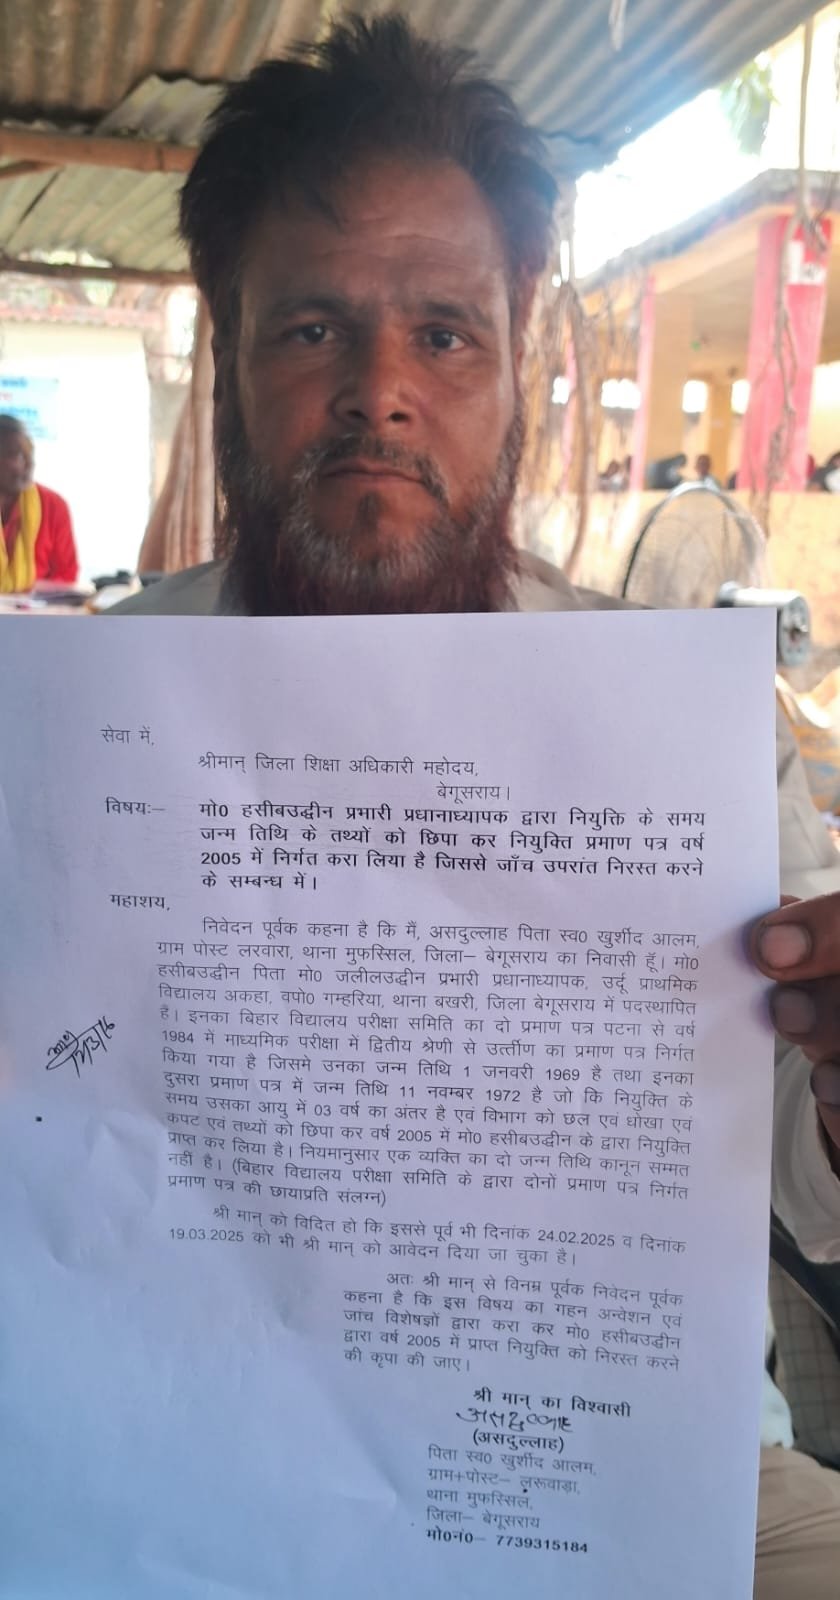 सेवा में,
श्रीमान् जिला शिक्षा अधिकारी महोदय,
बेगूसराय।
विषयः– मो0 हसीबउद्धीन प्रभारी प्रधानाध्यापक द्वारा नियुक्ति के समय
जन्म तिथि के तथ्यों को छिपा कर नियुक्ति प्रमाण पत्र वर्ष
2005 में निर्गत करा लिया है जिससे जाँच उपरांत निरस्त करने
के सम्बन्ध में।
महाशय,
निवेदन पूर्वक कहना है कि मैं, असदुल्लाह पिता स्व0 खुर्शीद आलम,
ग्राम पोस्ट लरवारा, थाना मुफस्सिल, जिला– बेगूसराय का निवासी हूँ। मो0
हसीबउद्धीन पिता मो0 जलीलउद्धीन प्रभारी प्रधानाध्यापक, उर्दू प्राथमिक
विद्यालय अकहा, वपो0 गम्हरिया, थाना बखरी, जिला बेगूसराय में पदस्थापित
है। इनका बिहार विद्यालय परीक्षा समिति का दो प्रमाण पत्र पटना से वर्ष
1984 में माध्यमिक परीक्षा में द्वितीय श्रेणी से उर्त्तीण का प्रमाण पत्र निर्गत
किया गया है जिसमे उनका जन्म तिथि 1 जनवरी 1969 है तथा इनका
दुसरा प्रमाण पत्र में जन्म तिथि 11 नवम्बर 1972 है जो कि नियुक्ति के
समय उसका आयु में 03 वर्ष का अंतर है एवं विभाग को छल एवं धोखा एवं
कपट एवं तथ्यों को छिपा कर वर्ष 2005 में मो0 हसीबउद्धीन के द्वारा नियुक्ति
प्राप्त कर लिया है। नियमानुसार एक व्यक्ति का दो जन्म तिथि कानून सम्मत
नहीं है। (बिहार विद्यालय परीक्षा समिति के द्वारा दोनों प्रमाण पत्र निर्गत
प्रमाण पत्र की छायाप्रति संलग्न)
श्री मान् को विदित हो कि इससे पूर्व भी दिनांक 24.02.2025 व दिनांक
19.03.2025 को भी श्री मान् को आवेदन दिया जा चुका है।
अतः श्री मान् से विनम्र पूर्वक निवेदन पूर्वक
कहना है कि इस विषय का गहन अन्वेशन एवं
जांच विशेषज्ञों द्वारा करा कर मो0 हसीबउद्धीन
द्वारा वर्ष 2005 में प्राप्त नियुक्ति को निरस्त करने
की कृपा की जाए।
श्री मान् का विश्वासी
असदुल्लाह
(असदुल्लाह)
पिता स्व0 खुर्शीद आलम,
ग्राम+पोस्ट– लरूवाड़ा,
थाना मुफस्सिल,
जिला– बेगूसराय
मो0नं0– 7739315184